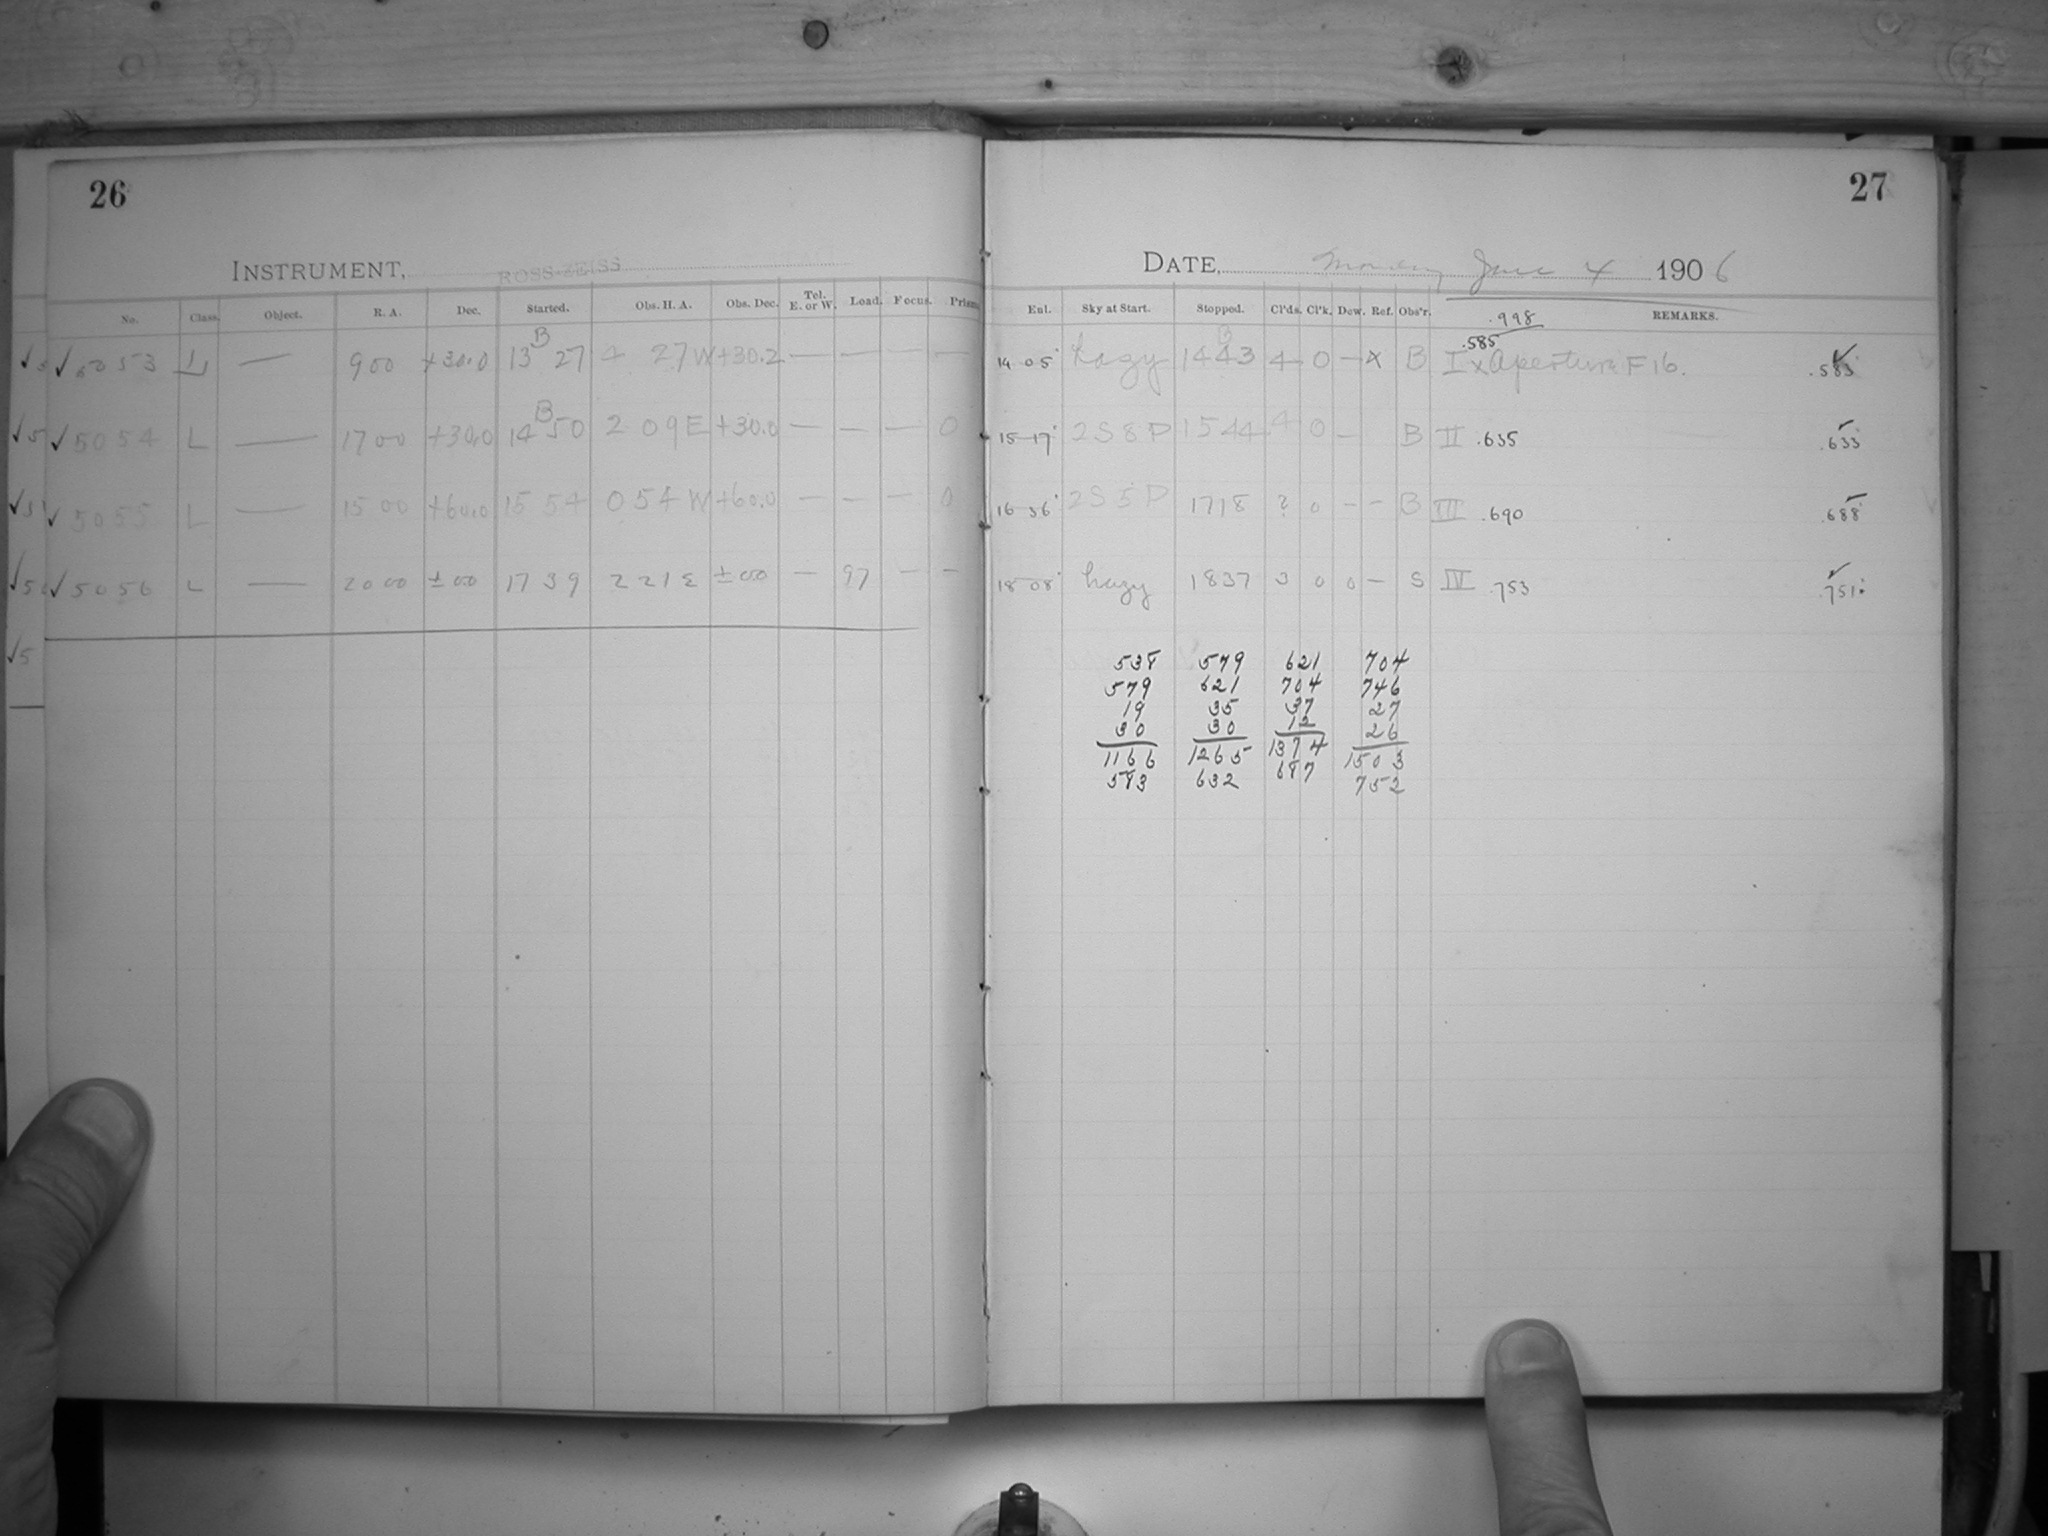 26
INSTRUMENT, ROSS-ZEISS
No. Class. Object. R. A. Dec. Started. Obs. H. A. Obs. Dec. Tel. E. or W. Load. Focus. Prism
✓ 5053 L — 9 00 +30.0 13 B 27 4 27 W +30.2 — — — —
✓ 5054 L — 17 00 +30.0 14 B 50 2 09 E +30.0 — — — 0
✓ 5055 L — 15 00 +60.0 15 54 0 54 W +60.0 — — — 0
✓ 5056 L — 20 00 ±00 17 39 2 21 E ±00 — 97 — —
✓5
27
DATE, Monday June 4 1906
Eul. Sky at Start. Stopped. Cl'ds. Cl'k. Dew. Ref. Obs'r. .998 REMARKS.
14 05 hazy 14 B 43 4 0 — x B .585 I x Aperture F 16. .583
15 17 2S 8P 15 44 4 0 — B II .635 .633
16 36 2S 5P 1718 ? 0 — — B III .690 .688
18 08 hazy 1837 3 0 0 — S IV .753 .751
538 579 621 704
579 621 704 746
19 35 37 27
30 30 12 26
1166 1265 1374 1503
583 632 687 752